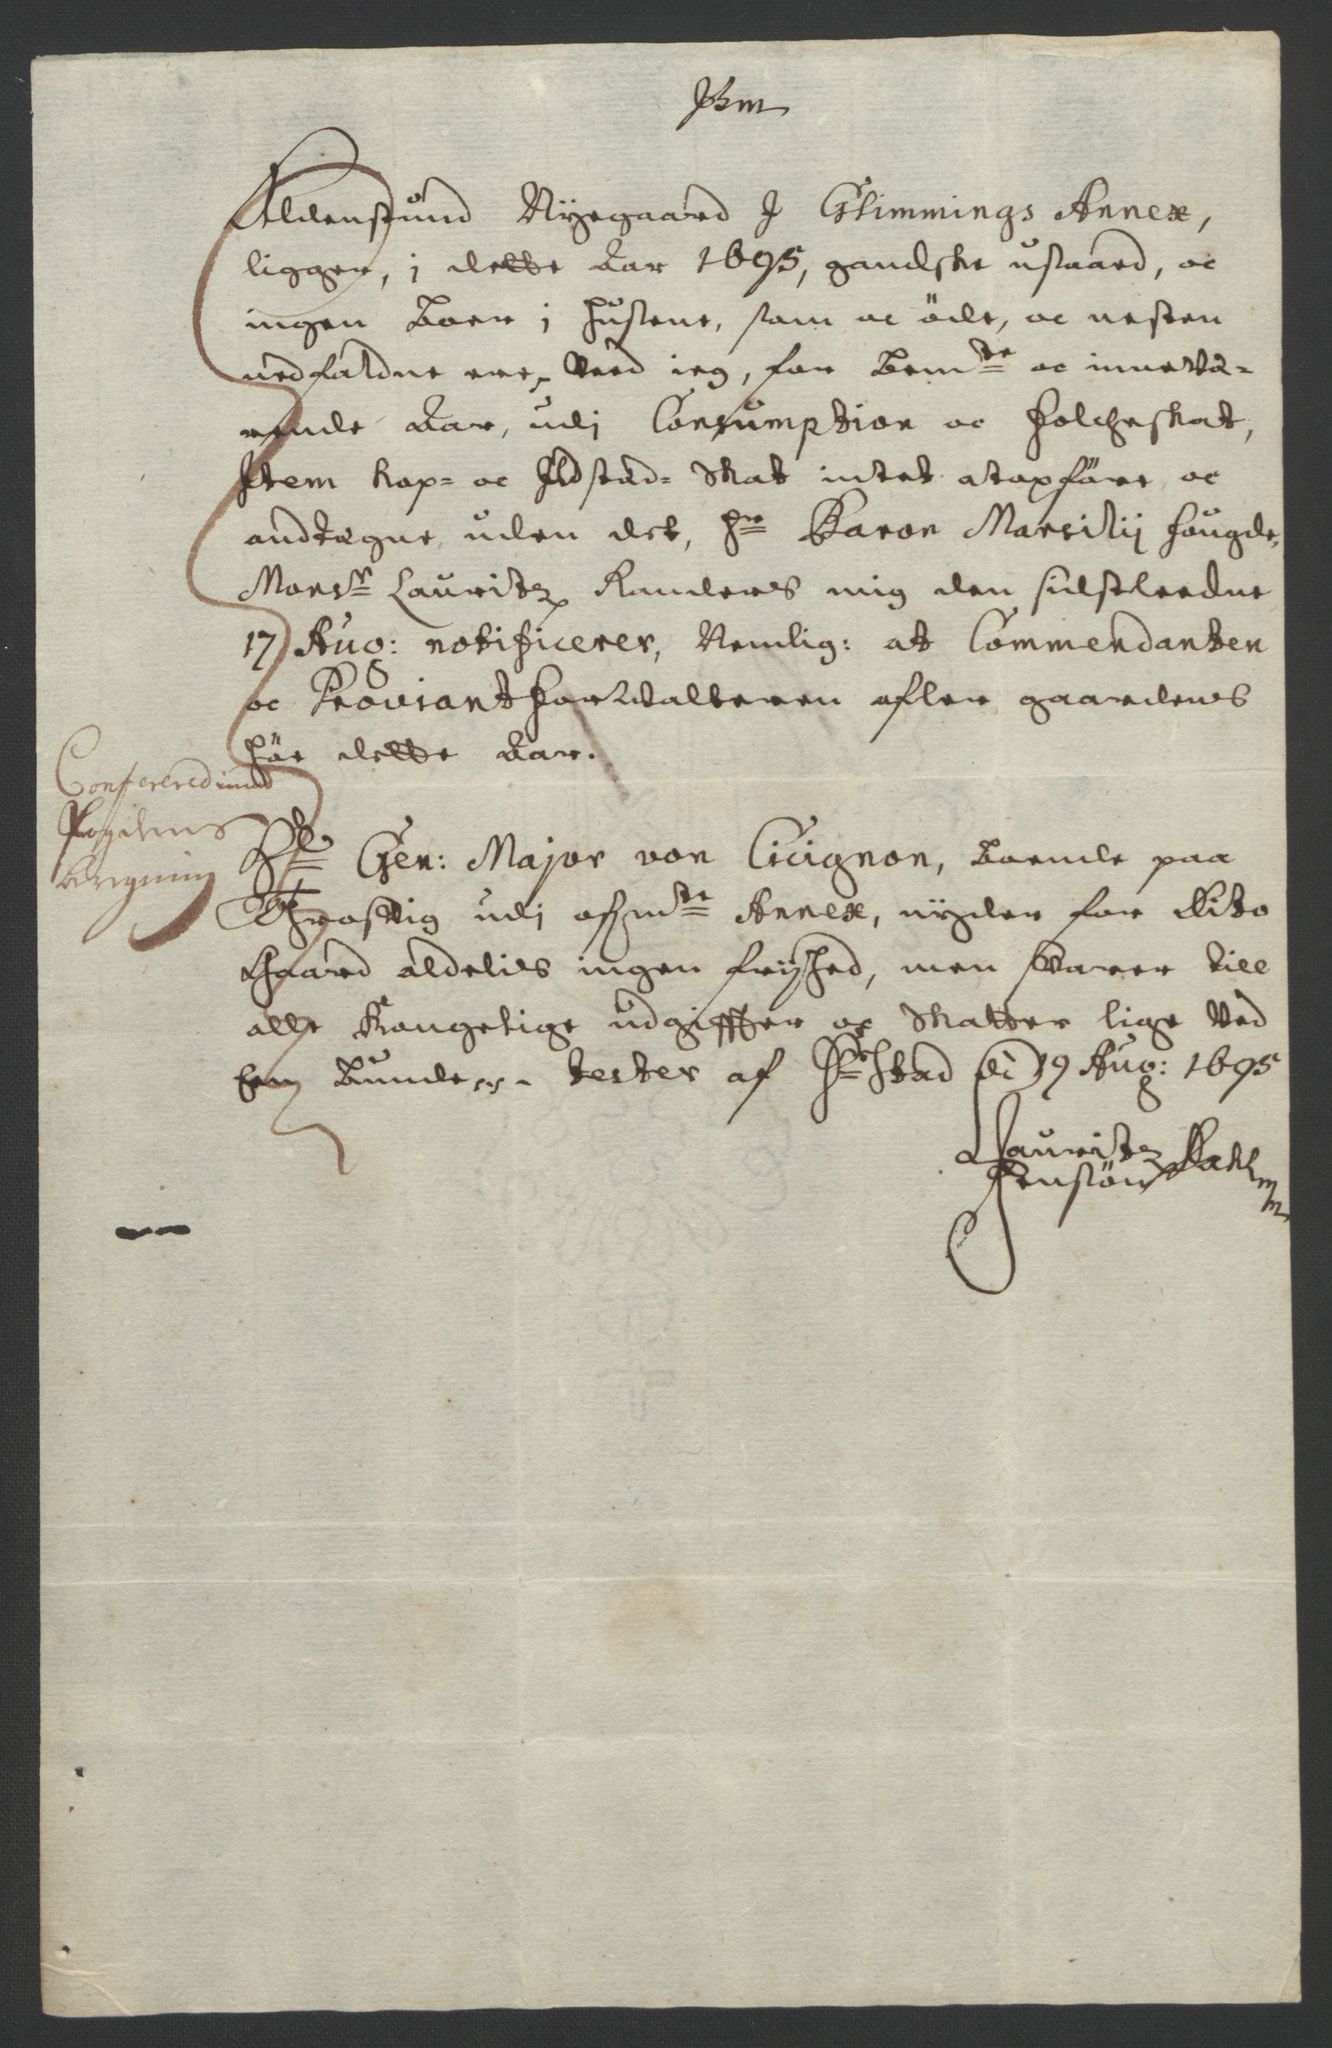 Aldensund Nyegaard J Glimmings Annex,
ligger, j dette Aar 1695, gandske usaaed, oc
ingen Boer j Husene, som oc öde, oc nesten
nedfaldne ere, Veed ieg, for Bemte oc inneva-
rende Aar, udj Consumption oc Folcheskat,
Jtem Kop= oc Ildstæd= Skat intet at opföre oc
andtegne uden det, Hr Baron Marsilij fougde,
Monsr Lauritz Randers mig den sidstleedne
17 Aug: notificerer, Nemlig: at Commendanten
oc Proviantforvalteren afler gaardens
Höe dette Aar.
Conferered imod
Fogdens
Beregning
Sl Gen: Major von Cicignon, Boende paa
Throsvig udj ofmte Annex, nyder for Dito
Gaard aldelis ingen frijhed, men svarer till
alle Kongelige udgiffter og Skatter lige Ved
En Bunde, tester af Fr:Stad d 19 Aug: 1695
Lauritz
Jensön